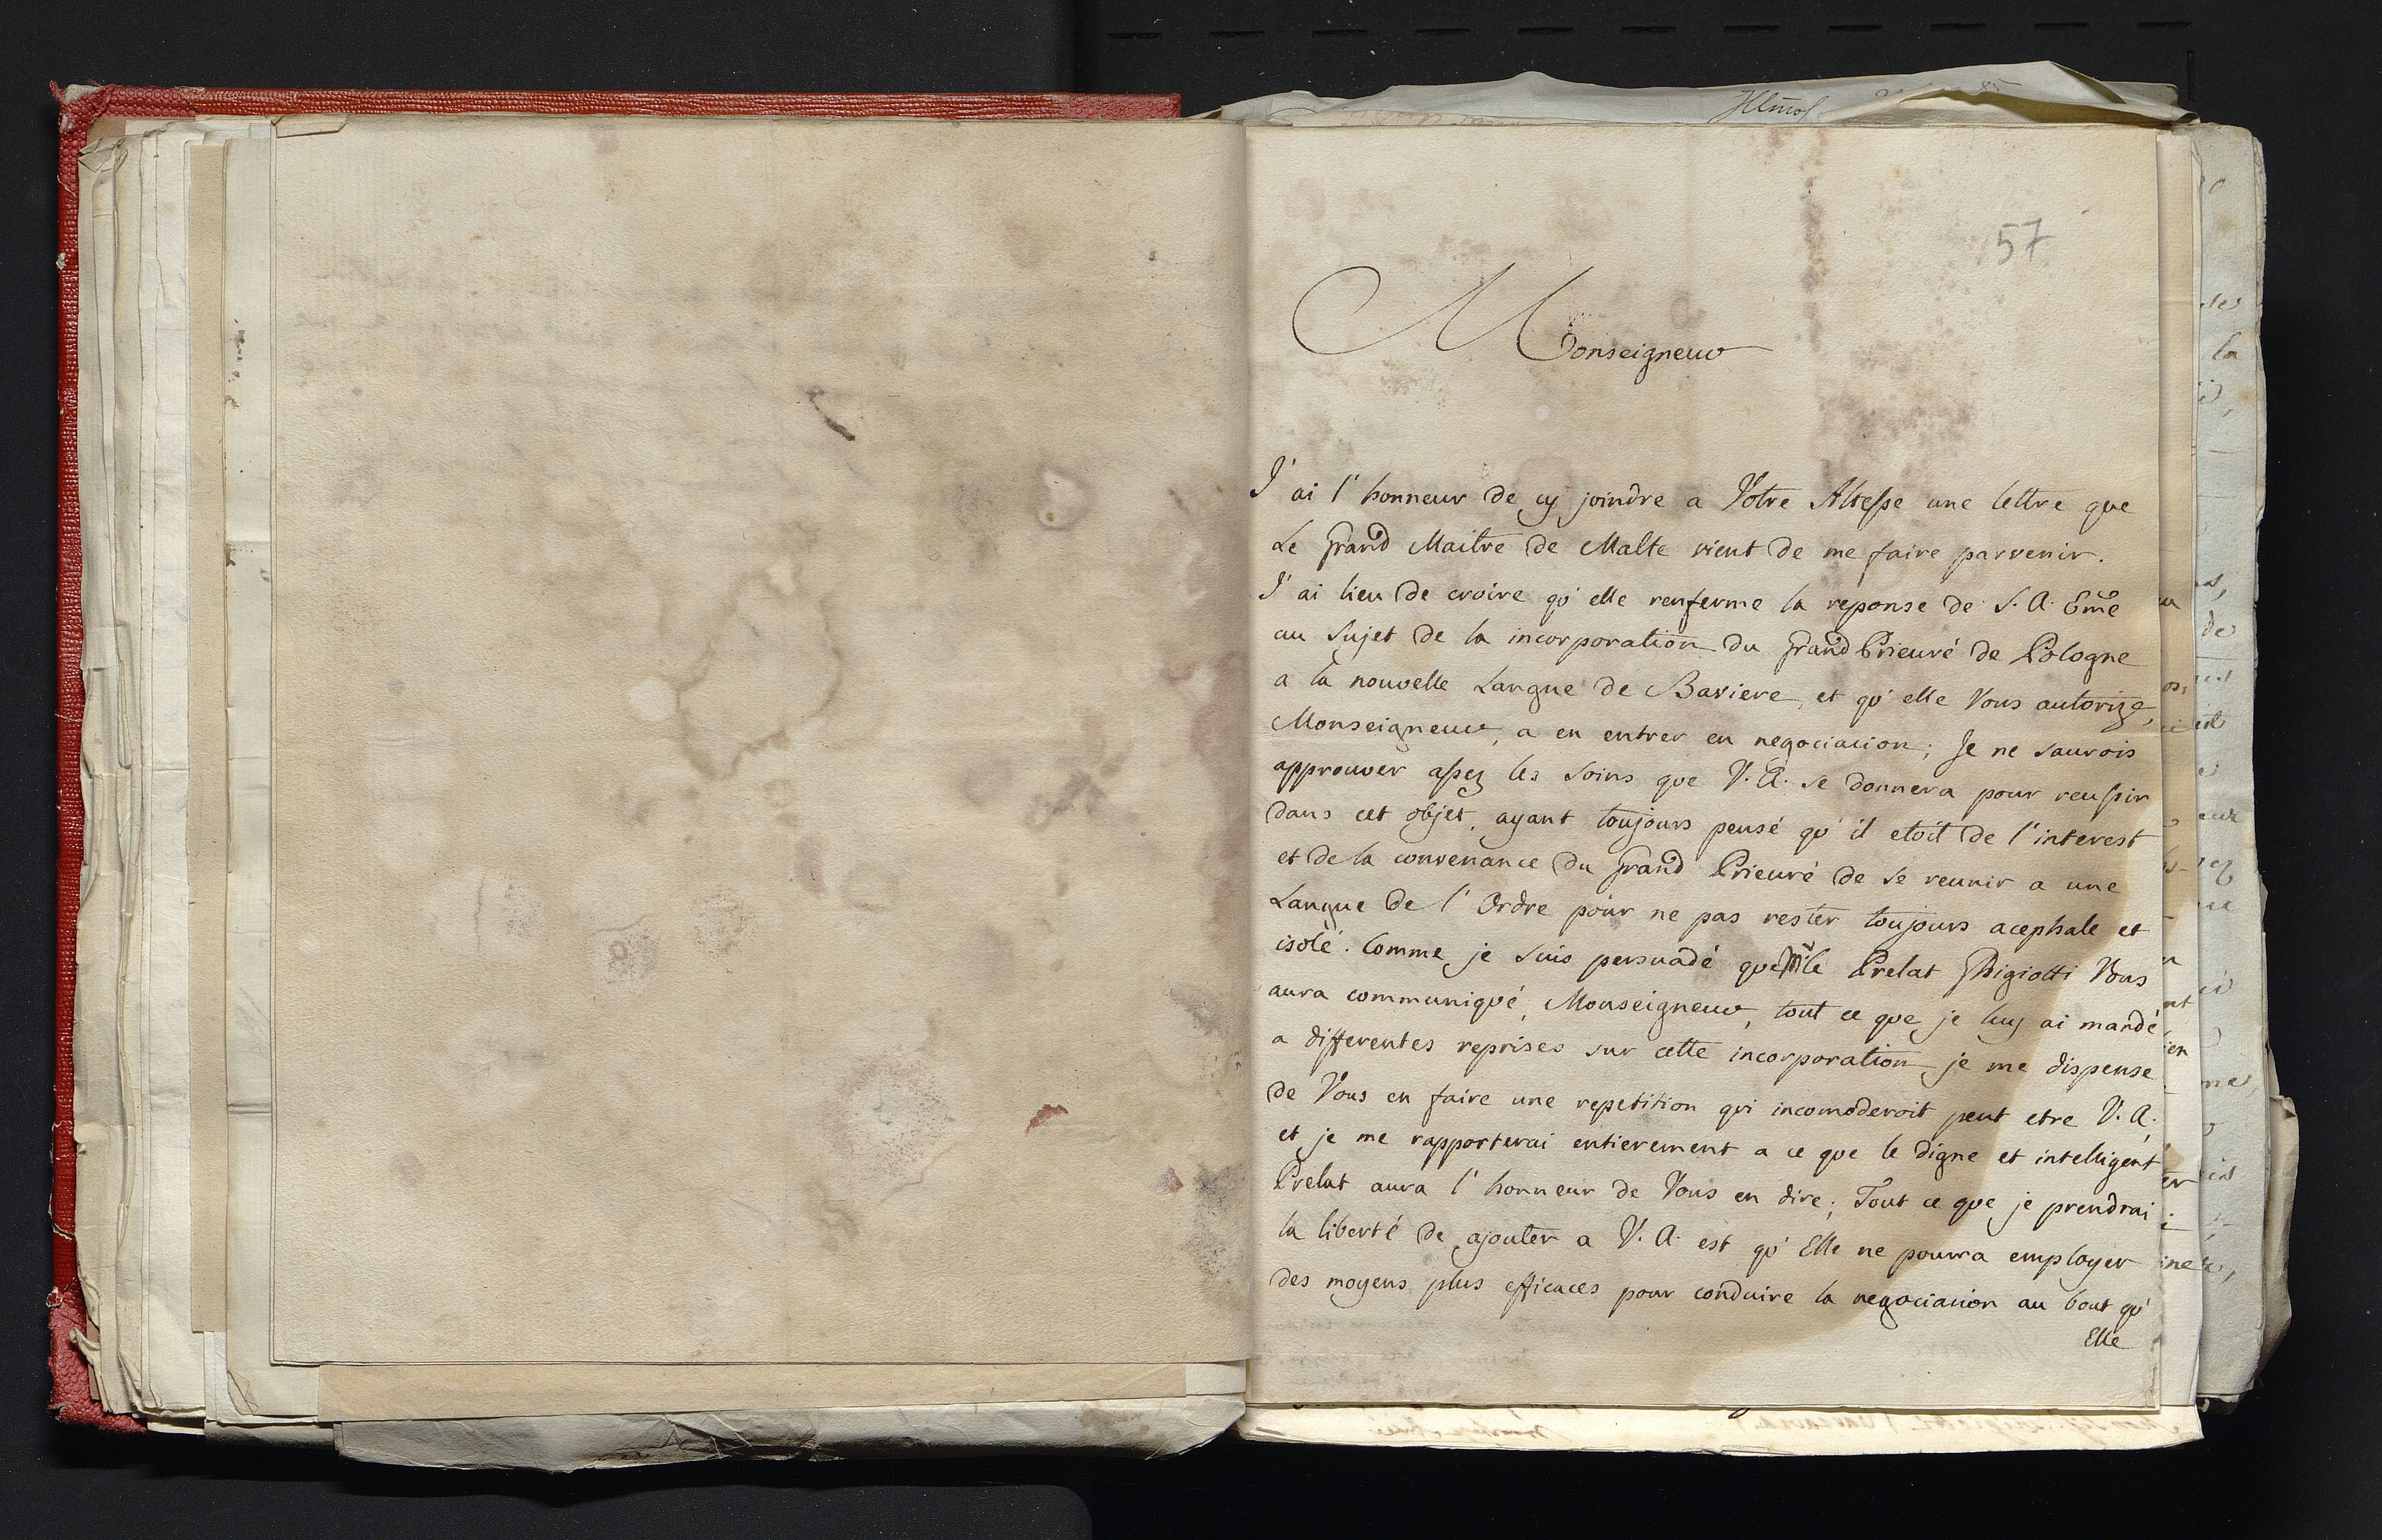 57
Monseigneur
J'ai l'honneur de cy joindre a Votre Altesse une lettre que
Le Grand Maitre de Malte vient de me faire parvenir.
J'ai lieu de croire qu'elle renferme la reponse de S. A. Eme
au Sujet de la incorporation du Grand Prieuré de Pologne
a la nouvelle Langue de Baviere, et qu'elle Vous autorize,
Monseigneur, a en entrer en negociacion; Je ne saurois
approuver assez les soins que V. A. se donnera pour reussir
dans cet objet, ayant toujours pensé qu'il etoit de l'interest
et de la convenance du Grand Prieuré de se reunir a une
Langue de l'Ordre pour ne pas rester toujours acephale et
isolé. Comme je suis persuadé que Mr le Prelat Ghigiotti Vous
aura communiqué, Monseigneur, tout ce que je luy ai mandé
a differentes reprises sur cette incorporation je me dispense
de Vous en faire une repetition qui incomoderoit peut etre V. A.
et je me rapporterai entierement a ce que le digne et intelligent
Prelat aura l'honneur de Vous en dire; Tout ce que je prendrai
la liberté de ajouter a V. A. est qu'Elle ne pourra employer
des moyens plus efficaces pour conduire la negociacion au bout qu'
Elle